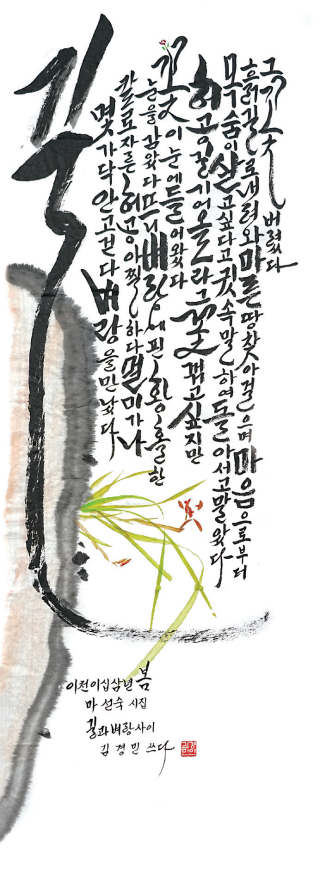 길
몇 가닥 안고 걷다 벼랑을 만났다
칼로 자른 허공 아찔하다 멀미가 나
눈을 감았다 뜨니 벼랑에 핀 황홀한
꽃이 눈에 들어왔다
허공길 기어올라 그 꽃 꺾고 싶지만
목숨이 살고 싶다고 귓속말하여 돌아서고 말았다
흙길로 내려와 마른 땅 찾아 걸으며 마음으로부터
그 꽃 버렸다
이천이십삼년 봄
마선숙 시집
길과 벼랑사이
김경민 쓰다